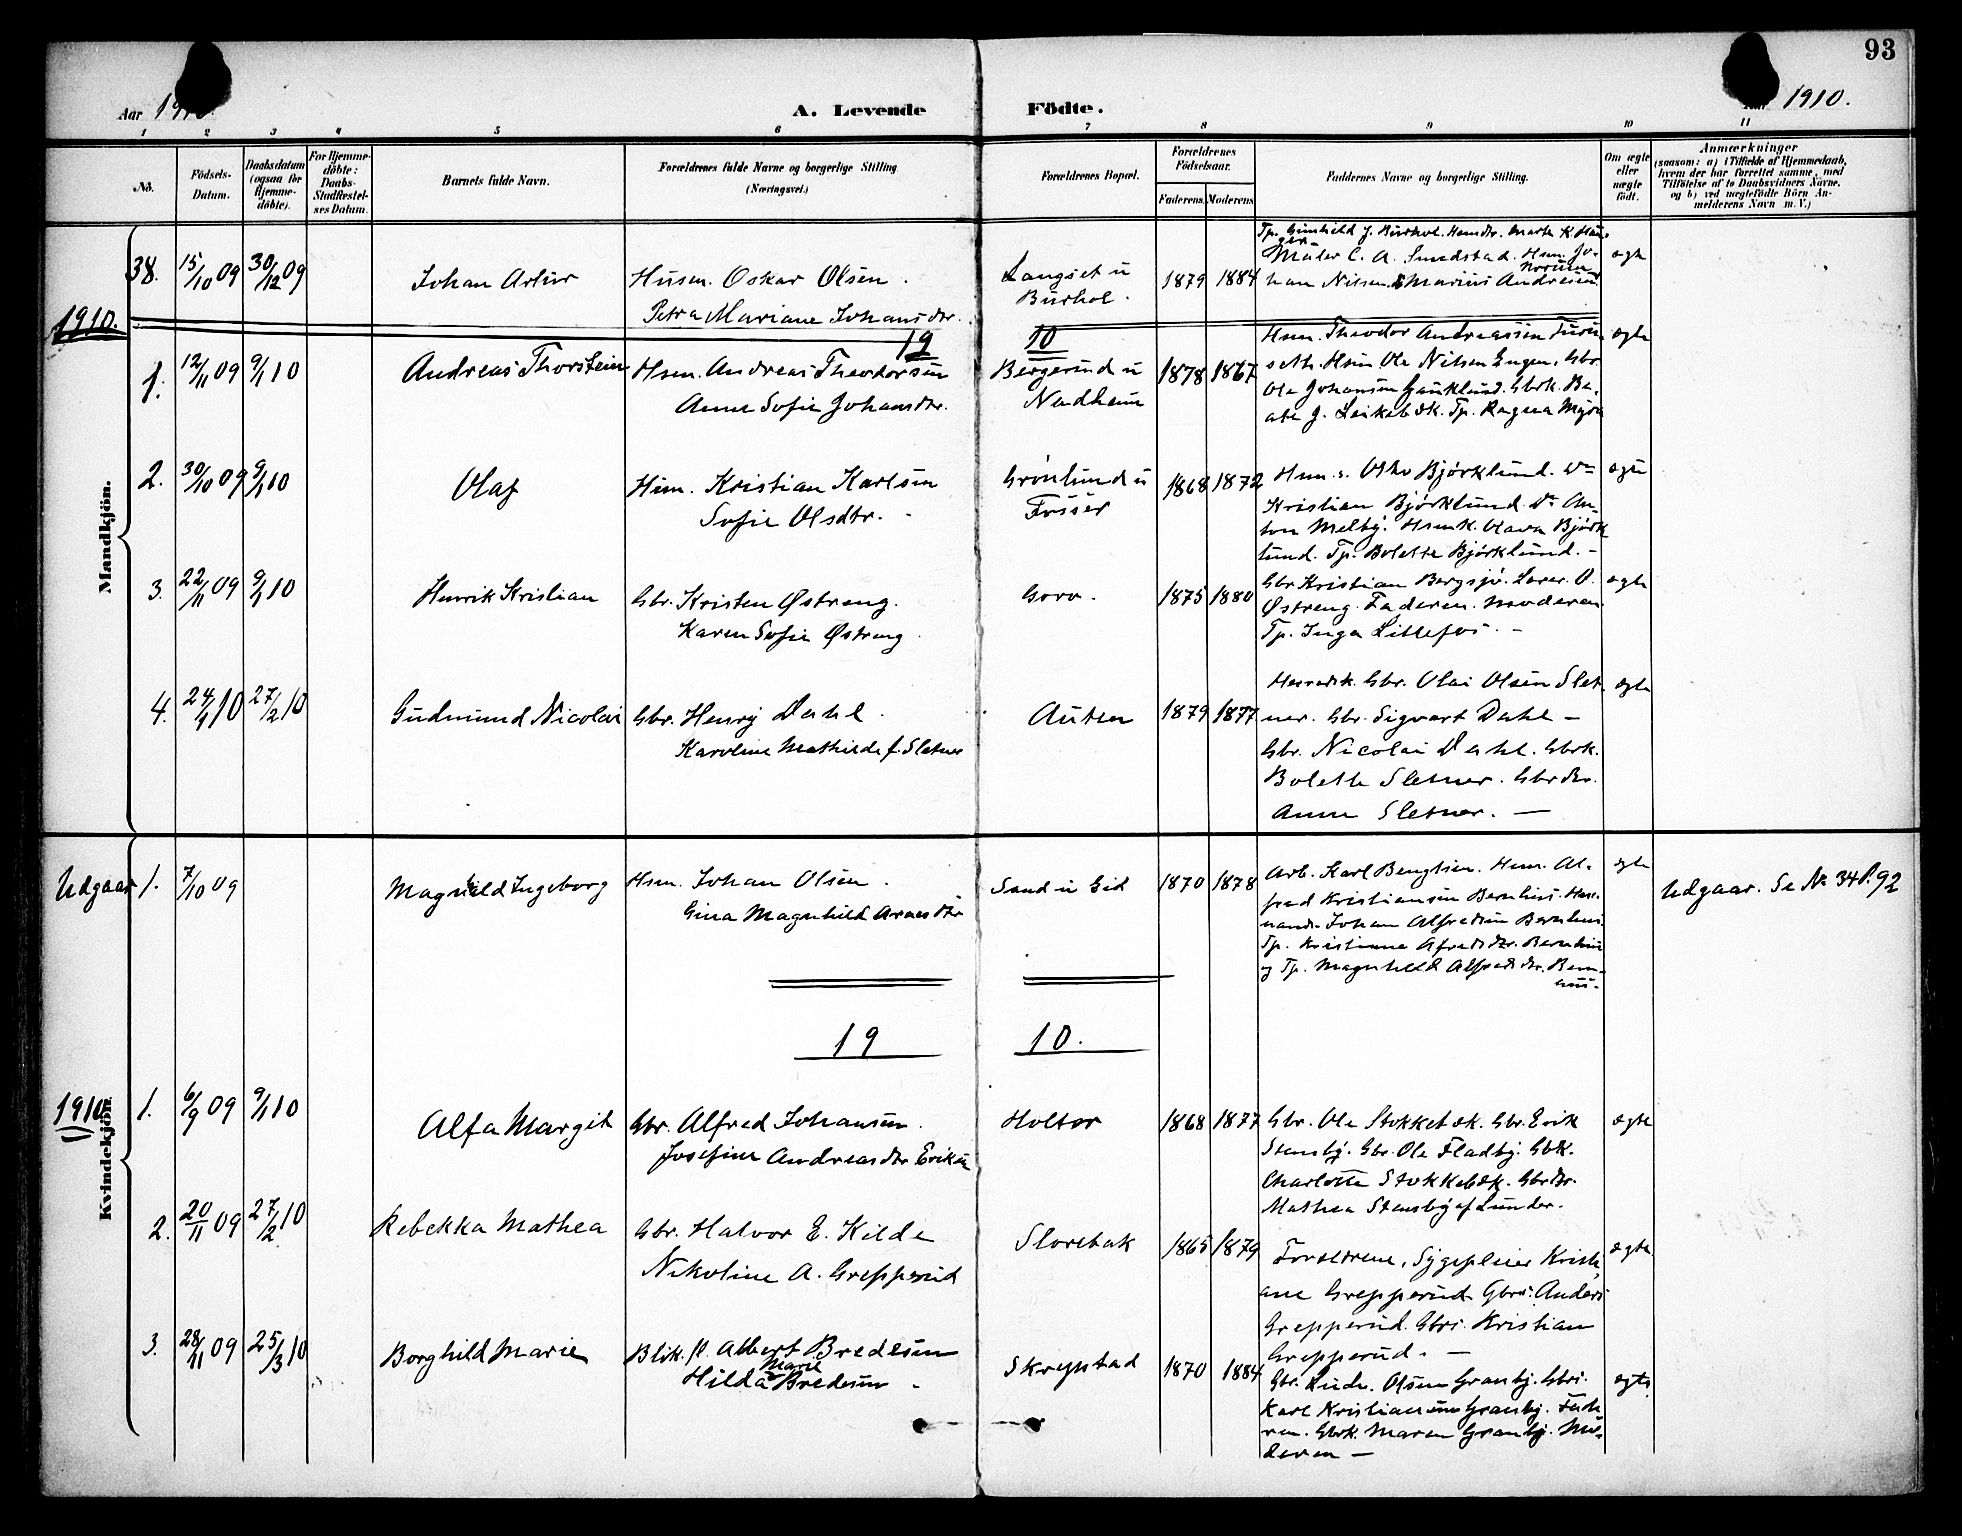 93
Aar 1910.
A. Levende Födte.
Aar 1910.
1 2 3 4 5 6 7 8 9 10 11
No.
Födsels-Datum.
Daabsdatum (ogsaa for Hjemme-döbte).
For Hjemme-döbte: Daabs-Stadfæstel-ses Datum.
Barnets fulde Navn.
Forældrenes fulde Navne og borgerlige Stilling
(Næringsvei.)
Forældrenes Bopæl.
Forældrenes Födselsaar.
Faderens. Moderens.
Faddernes Navne og borgerlige Stilling.
Om ægte eller uægte födt.
Anmærkninger
(saasom: a) i Tilfælde af Hjemmedaab,
hvem der har forrettet samme, med
Tilföielse af to Daabsvidners Navne.
og b) ved uægtefödte Börn An-
melderens Navn m. V.)
Mandkjön.
38. 15/10 09 30/12 09 Johan Artur
Husm. Oskar Olsen.
Petra Mariane Johansdtr.
Langset u
Burhol.
1879 1884
Maler C. A. Smedstad. Hsm. Jo-
han Nilsen. Marius Andresen
ægte
1910.
19 10
1. 12/11 09 9/1 10 Andreas Thorstein
Hsm. Andreas Theodorsen
Anne Sofie Johansdtr.
Bergerud u
Nadheim
1878 1867
Hsm. Theodor Andreassen Furu
seth. Hsm Ole Nilsen Engen. Gbr.
Ole Johansen Gauklund. Gbrk. Be-
ate J. Leikebæk. Tp. Ragna Myra
ægte
2. 30/10 09 9/1 10 Olaf
Hsm. Kristian Karlsen
Sofie Olsdtr.
Grönlund u
Fosser
1868 1872
Hsm. s. Otto Björklund. Do
Kristian Björklund. Do An-
ton Melby. Hsmk. Olava Björk
lund. Tp. Bolette Björklund. -
ægte
3. 22/11 09 9/1 10 Henrik Kristian
Gbr. Kristen Østreng.
Karen Sofie Østreng.
Goro.
1875 1880
Gbr Kristian Bergsjö. Lærer O.
Østreng. Faderen. Moderen
Tp. Inga Lillefos. -
ægte
4. 24/1 10 27/2 10 Gudmund Nicolai
Gbr. Henry Dahl.
Karoline Mathilde f. Sletner
Auten
1879 1877
Herredsk. Gbr. Olai Olsen Slet
ner. Gbr. Sigvart Dahl -
Gbr. Nicolai Dahl. Gbrk.
Bolette Sletner. Gbrdtr.
Anna Sletner. -
ægte
Kvindekjön.
Udgaar 1. 7/10 09 Magnhild Ingeborg
Hsm. Johan Olsen.
Gina Magnhild Arnesdtr
Sand u Eid
1870 1878
Arb. Karl Bengtsen. Hsm. Al-
fred Kristiansen Bernhus.
Johan Alfredsen Bernhus.
Tp. Kristinne Alfredsdtr. Bernhus
og Tp. Magnhild Alfredsdtr. Bern-
hus.
ægte
Udgaar. Se No 34 P. 92
19 10.
1910
1. 6/9 09 9/1 10 Alfa Margit
Gbr. Alfred Johansen.
Josefine Andreasdtr Eriksen
Holtor
1868 1877
Gbr. Ole Stokkebæk. Gbr. Erik
Stensby. Gbr. Ole Fladby. Gbk.
Charlotte Stokkebæk. Gbrdtr.
Mathea Stensby af Lunder.
ægte
2. 20/11 09 27/2 10 Rebekka Mathea
Gbr. Halvor E. Kilde
Nikoline A. Grepperud
Slorebak
1865 1879
Forældrene, Sygepleier Kristi-
ane Grepperud Gbrs. Anders
Grepperud. Gbrs. Kristian
Grepperud. -
ægte
3. 28/11 09 25/3 10 Borghild Marie
Blik. sl. Albert Bredesen
Hilda Marie Bredesen.
Skrepstad
1870 1884
Gbr. Ludv. Olsen Granby. Gbrs.
Karl Kristiansen Granby. Fade
ren. Gbrk. Maren Granby. Mo-
deren -
ægte